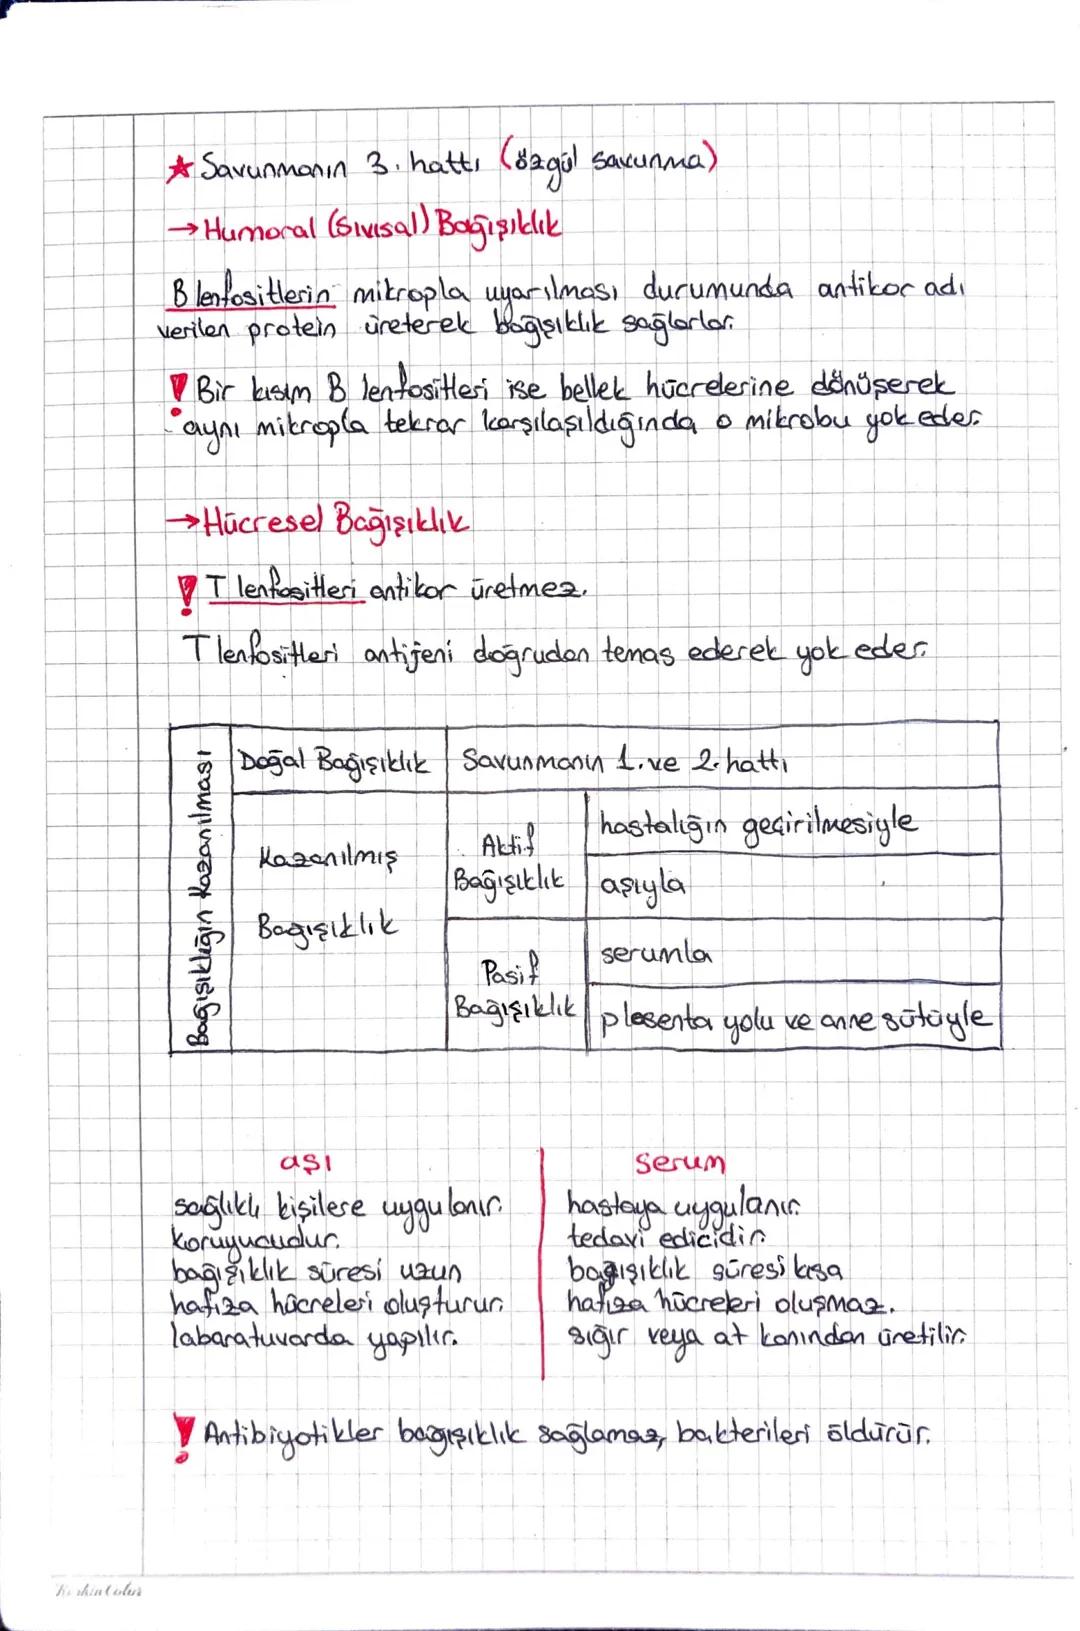 ★ Savunmanın 3. hattı (özgül savunma)
→ Humoral (Sıvısal) Bağışıklık
B lenfositlerin mikropla uyarılması durumunda antikor adı
verilen protein üreterek bağışıklık sağlarlar.
! Bir kısım B lenfositleri ise bellek hücrelerine dönüşerek
aynı mikropla tekrar karşılaşıldığında o mikrobu yok eder.
→ Hücresel Bağışıklık
! T lenfositleri antikor üretmez.
T lenfositleri antijeni doğrudan temas ederek yok eder.
Bağışıklığın Kazanılması
Doğal Bağışıklık
Savunmanın 1. ve 2. hattı
Kazanılmış
Bağışıklık
Aktif
Bağışıklık
hastalığın geçirilmesiyle
aşıyla
Pasif
Bağışıklık
serumla
plesenta yolu ve anne sütüyle
aşı
sağlıklı kişilere uygulanır.
koruyucudur.
bağışıklık süresi uzun
hafıza hücreleri oluşturur.
labaratuvarda yapılır.
serum
hastaya uygulanır.
tedavi edicidir.
bağışıklık süresi kısa
hafıza hücreleri oluşmaz.
sığır veya at kanından üretilir.
! Antibiyotikler bağışıklık sağlamaz, bakterileri öldürür.
Keskin Color